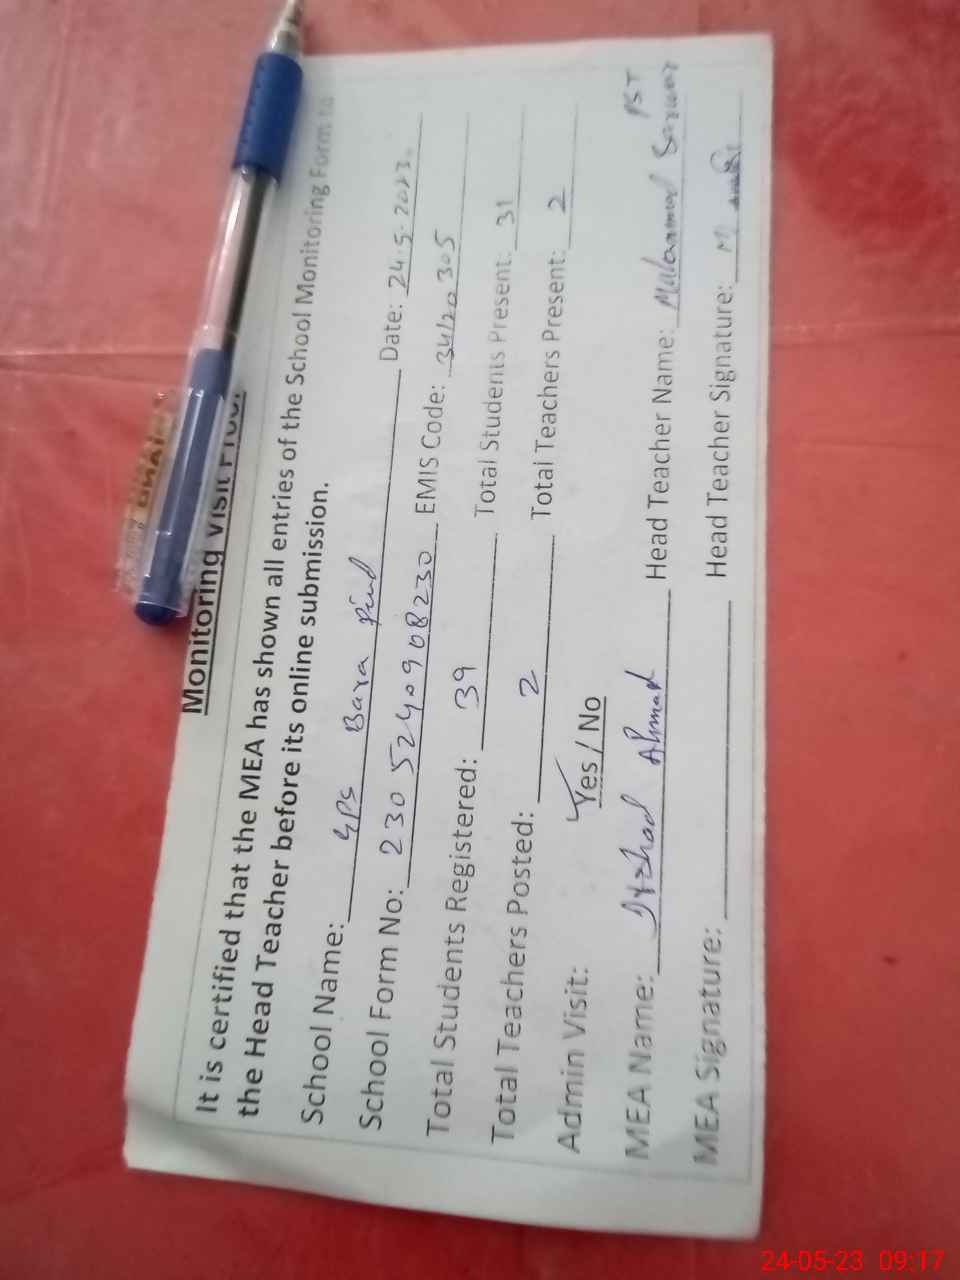 Monitoring Visit Proof
It is certified that the MEA has shown all entries of the School Monitoring Form to
the Head Teacher before its online submission.
School Name: GPS Bara Pind Date: 24.5.2023.
School Form No: 2305240908230 EMIS Code: 34120305
Total Students Registered: 39 Total Students Present: 31
Total Teachers Posted: 2 Total Teachers Present: 2
Admin Visit: Yes / No
MEA Name: Ahmad Head Teacher Name: Muhammad Sarwar PST
MEA Signature: Head Teacher Signature:
24-05-23 09:17